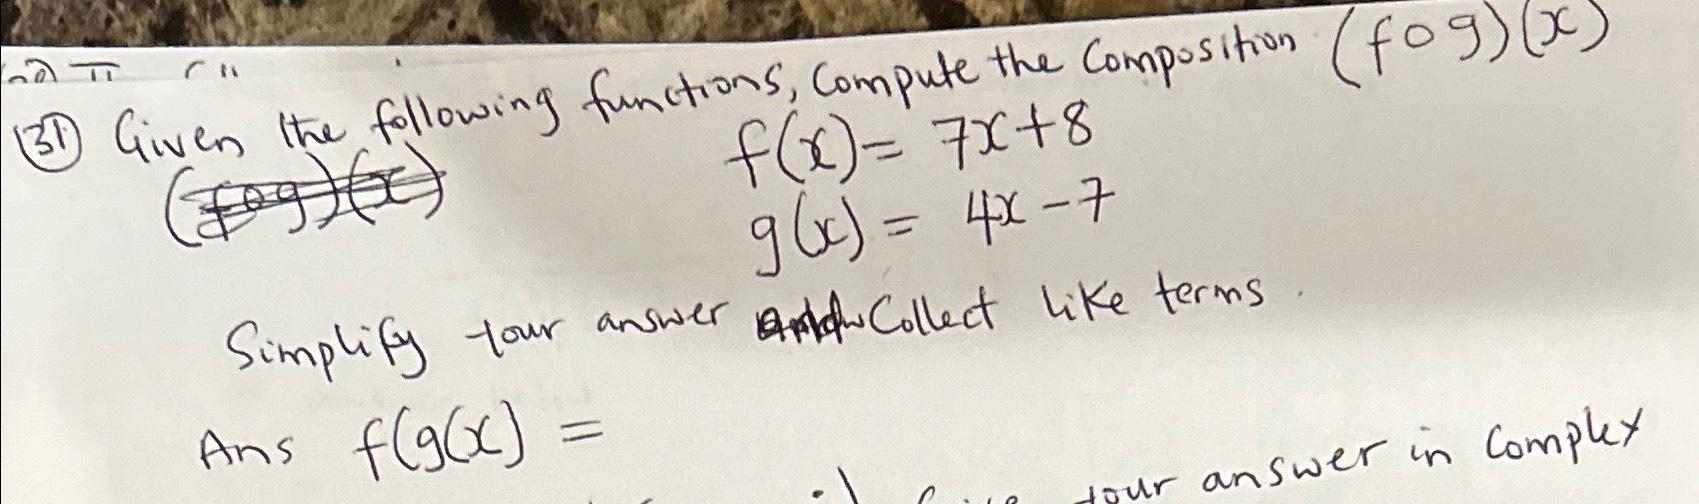 31 Given the following functions, Compute the Composition (fog)(x)
f(x) = 7x+8
(fog)(x)
g(x) = 4x-7
Simplify your answer Collect like terms.
Ans f(g(x) =
your answer in Complex